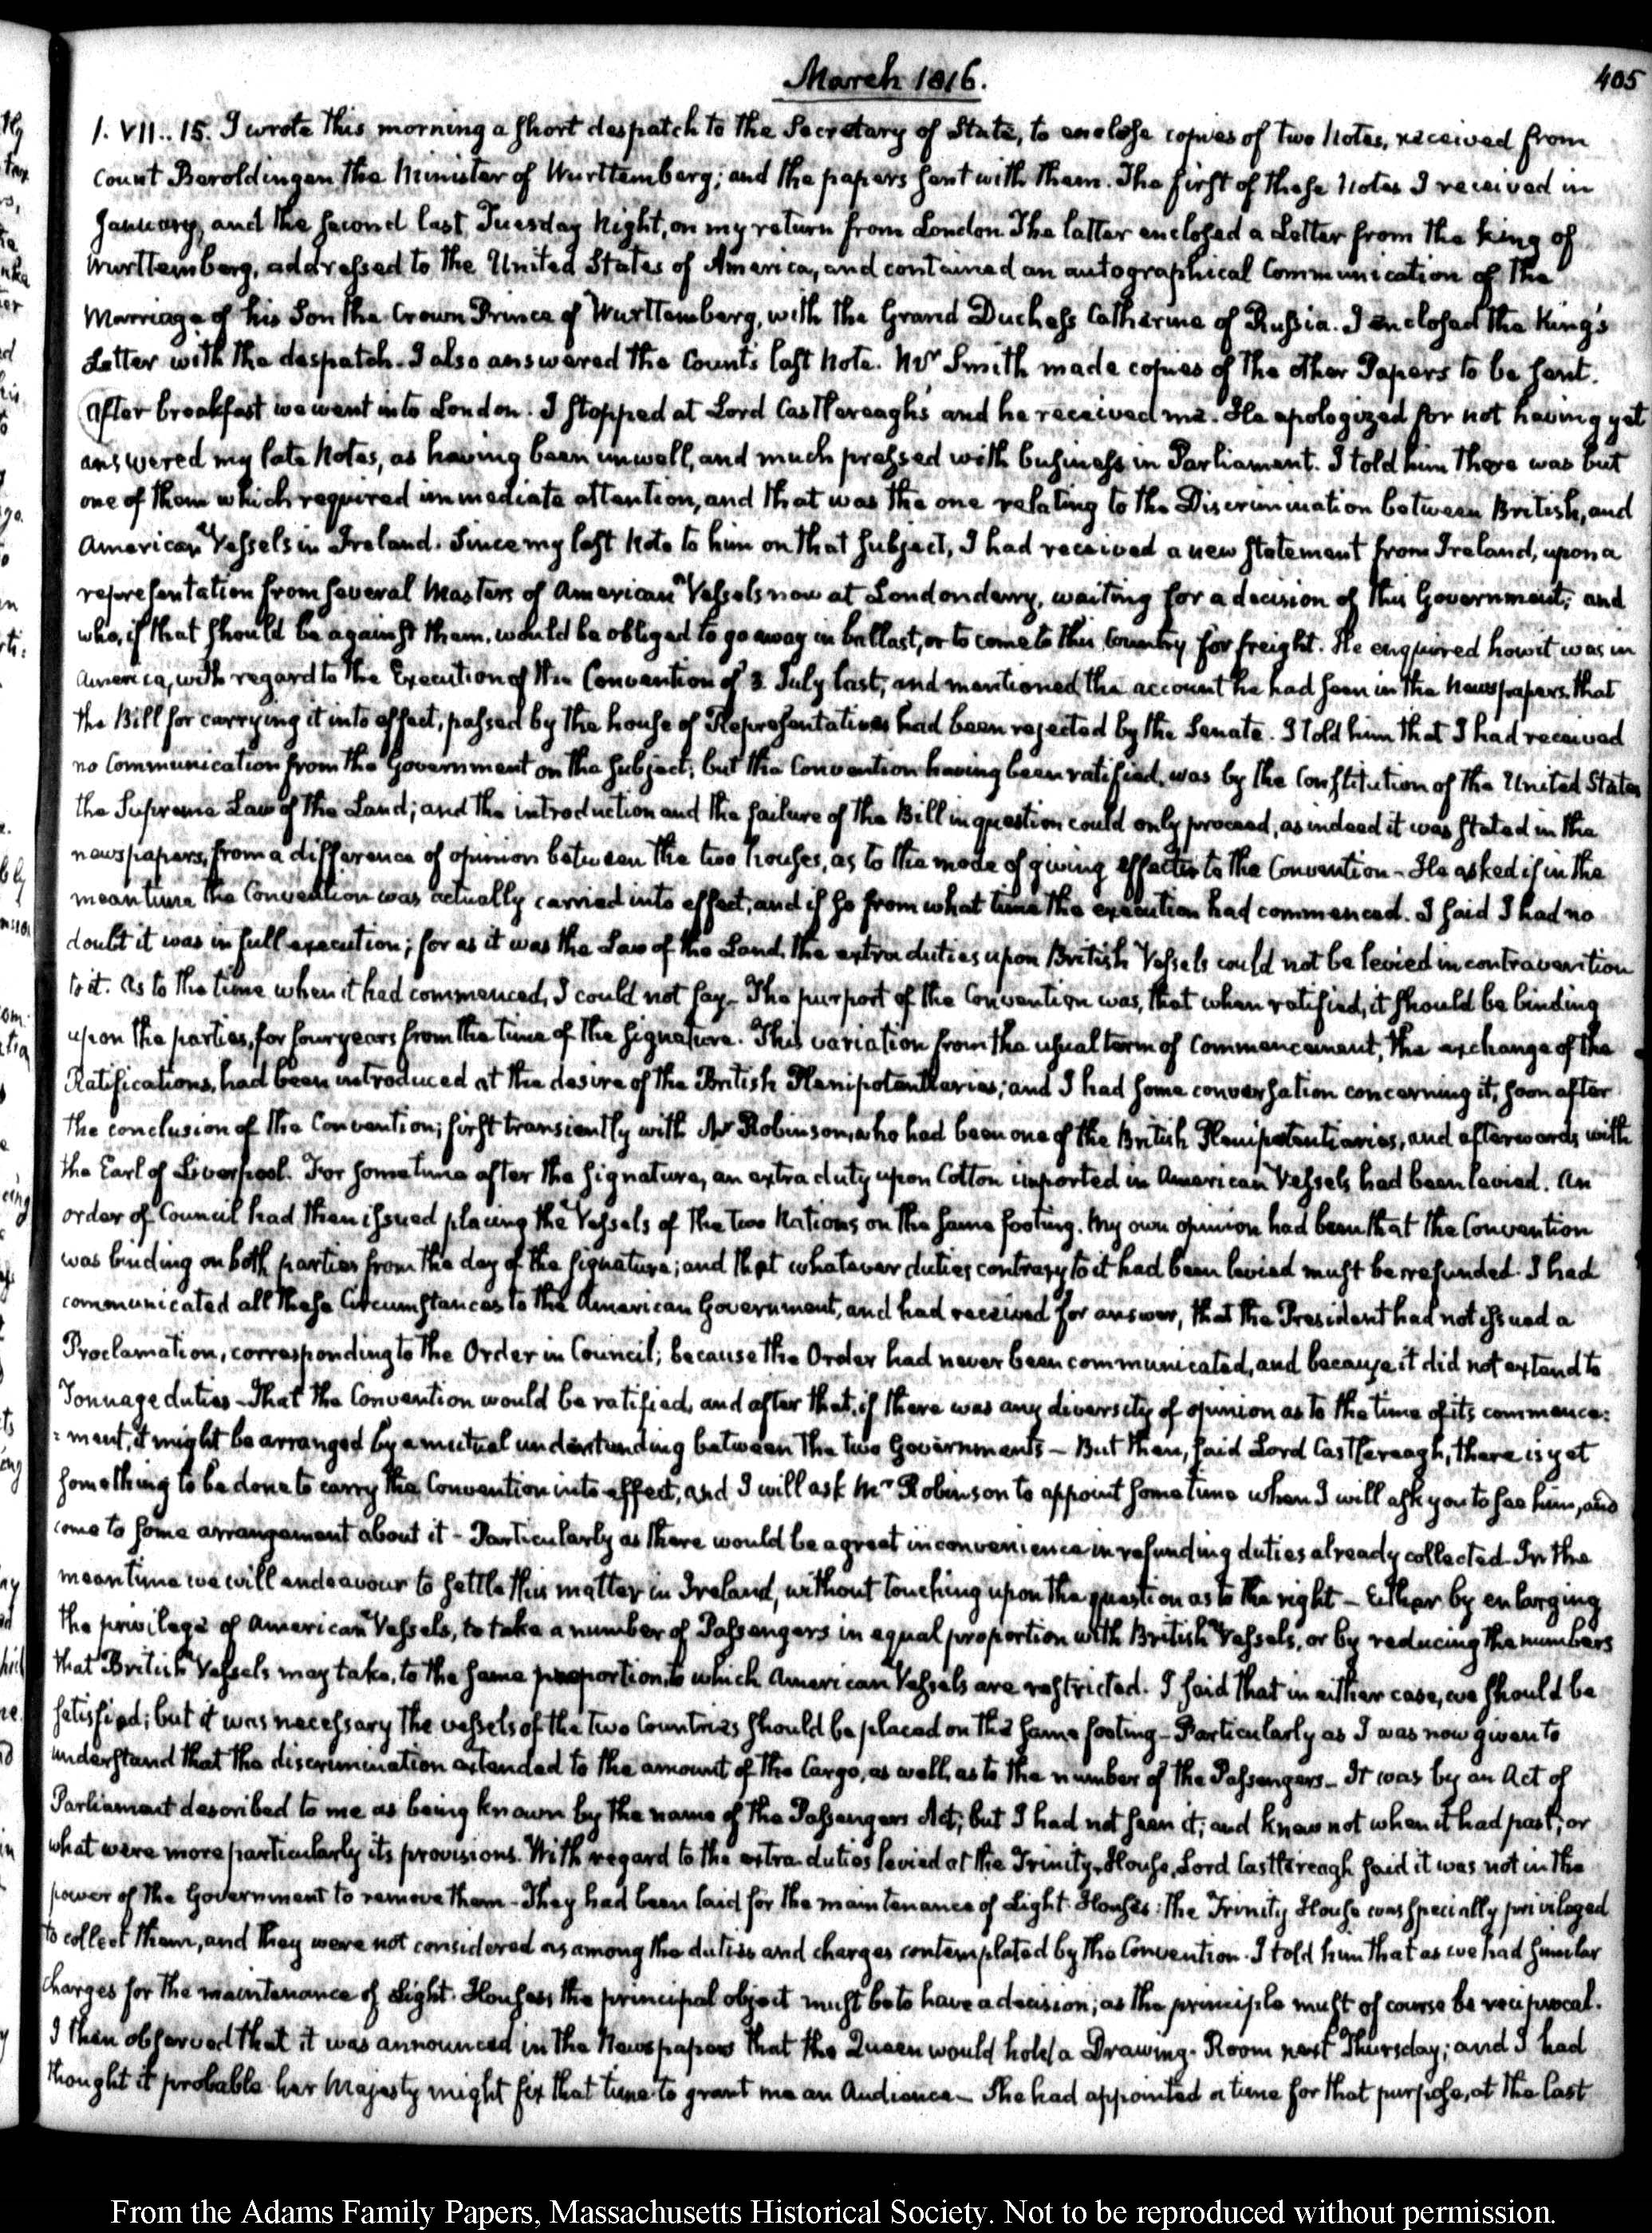 March 1816.
405
1. VII.. 15. I wrote this morning a short despatch to the Secretary of State, to enclose copies of two Notes, received from
Count Beroldingen the Minister of Wurttemberg; and the papers sent with them. The first of these Notes I received in
January, and the second last Tuesday Night, on my return from London. The latter enclosed a Letter from the King of
Wurttemberg, addressed to the United States of America, and contained an autographical Communication of the
Marriage of his Son the Crown Prince of Wurttemberg, with the Grand Duchess Catherine of Russia. I enclosed the King's
Letter with the despatch. I also answered the Count's last Note. Mr Smith made copies of the other Papers to be sent.
After breakfast we went into London. I stopped at Lord Castlereagh's and he received me. He apologized for not having yet
answered my late Notes, as having been unwell, and much pressed with business in Parliament. I told him there was but
one of them which required immediate attention, and that was the one relating to the Discrimination between British, and
American Vessels in Ireland. Since my last Note to him on that subject, I had received a new statement from Ireland, upon a
representation from several Masters of American Vessels now at Londonderry, waiting for a decision of this Government; and
who, if that should be against them, would be obliged to go away in ballast, or to come to this Country for freight. He enquired how it was in
America, with regard to the Execution of the Convention of 3 July last; and mentioned the account he had seen in the Newspapers, that
the Bill for carrying it into effect, passed by the house of Representatives had been rejected by the Senate. I told him that I had received
no Communication from the Government on the subject; but the Convention having been ratified, was by the Constitution of the United States
the Supreme Law of the Land; and the introduction and the failure of the Bill in question could only proceed, as indeed it was stated in the
newspapers, from a difference of opinion between the two houses, as to the mode of giving effect to the Convention - He asked if in the
mean time the Convention was actually carried into effect, and if so from what time the execution had commenced. I said I had no
doubt it was in full execution; for as it was the Law of the Land, the extra duties upon British Vessels could not be levied in contravention
to it. As to the time when it had commenced, I could not say - The purport of the Convention was, that when ratified, it should be binding
upon the parties, for four years from the time of the signature. This variation from the usual term of commencement, the exchange of the
Ratifications, had been introduced at the desire of the British Plenipotentiaries; and I had some conversation concerning it, soon after
the conclusion of the Convention; first transiently with Mr Robinson, who had been one of the British Plenipotentiaries, and afterwards with
the Earl of Liverpool. For some time after the signature, an extra duty upon Cotton imported in American Vessels had been levied. An
order of Council had then issued placing the Vessels of the two Nations on the same footing. My own opinion had been that the Convention
was binding on both parties from the day of the signature; and that whatever duties contrary to it had been levied must be refunded. I had
communicated all these Circumstances to the American Government, and had received for answer, that the President had not issued a
Proclamation, corresponding to the Order in Council; because the Order had never been communicated, and because it did not extend to
Tonnage duties - That the Convention would be ratified, and after that, if there was any diversity of opinion as to the time of its commence:
:ment, it might be arranged by a mutual understanding between the two Governments - But then, said Lord Castlereagh, there is yet
something to be done to carry the Convention into effect, and I will ask Mr Robinson to appoint some time when I will ask you to see him, and
come to some arrangement about it - Particularly as there would be a great inconvenience in refunding duties already collected. In the
mean time we will endeavour to settle this matter in Ireland, without touching upon the question as to the right - Either by enlarging
the privilege of American Vessels, to take a number of Passengers in equal proportion with British Vessels, or by reducing the numbers
that British Vessels may take, to the same proportion, to which American Vessels are restricted. I said that in either case, we should be
satisfied; but it was necessary the vessels of the two Countries should be placed on the same footing - Particularly as I was now given to
understand that the discrimination extended to the amount of the Cargo, as well as to the number of the Passengers - It was by an Act of
Parliament described to me as being known by the name of the Passengers Act; but I had not seen it; and knew not when it had past; or
what were more particularly its provisions. With regard to the extra duties levied at the Trinity-House, Lord Castlereagh said it was not in the
power of the Government to remove them - They had been laid for the maintenance of Light-Houses: the Trinity House was specially privileged
to collect them, and they were not considered as among the duties and charges contemplated by the Convention. I told him that as we had similar
charges for the maintenance of Light-Houses, the principal object must be to have a decision; as the principle must of course be reciprocal.
I then observed that it was announced in the Newspapers that the Queen would hold a Drawing-Room next Thursday; and I had
thought it probable her Majesty might fix that time to grant me an Audience - She had appointed a time for that purpose, at the last
From the Adams Family Papers, Massachusetts Historical Society. Not to be reproduced without permission.